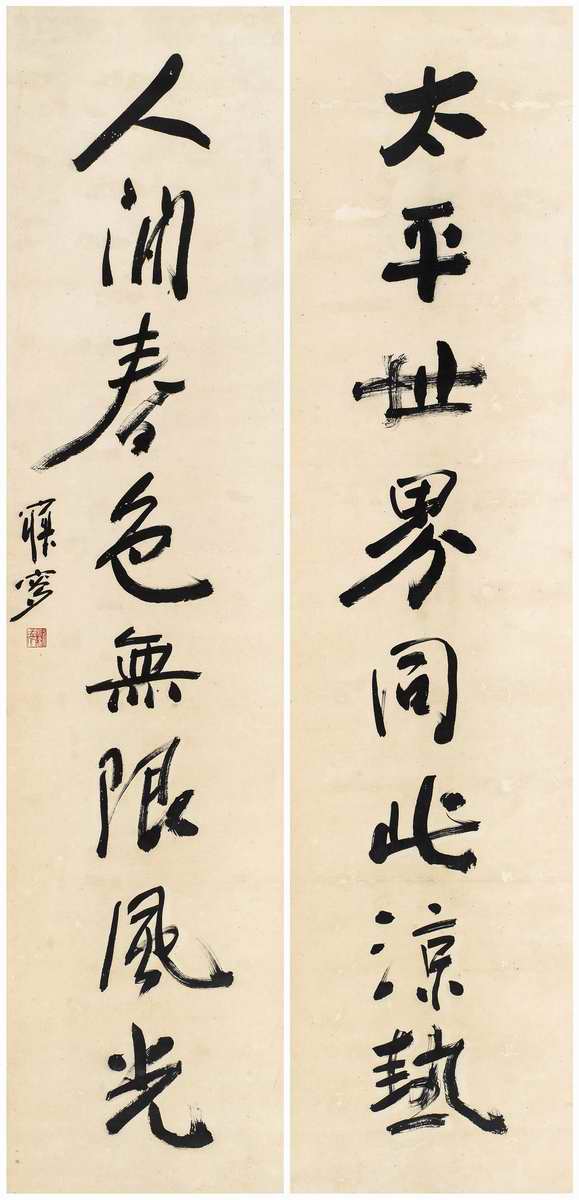 太平世界同此涼熱
人間春色無限風光
寐叟